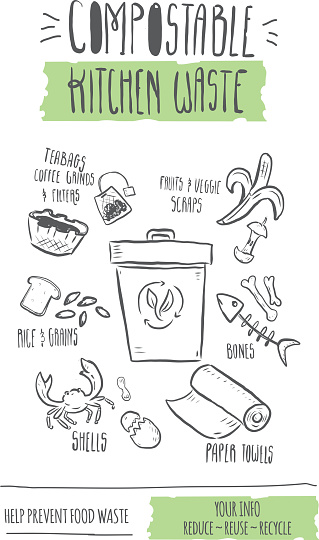 COMPOSTABLE
KITCHEN WASTE
TEABAGS
COFFEE GRINDS
& FILTERS
FRUITS & VEGGIE
SCRAPS
RICE & GRAINS
BONES
SHELLS
PAPER TOWELS
HELP PREVENT FOOD WASTE
YOUR INFO
REDUCE ~ REUSE ~ RECYCLE